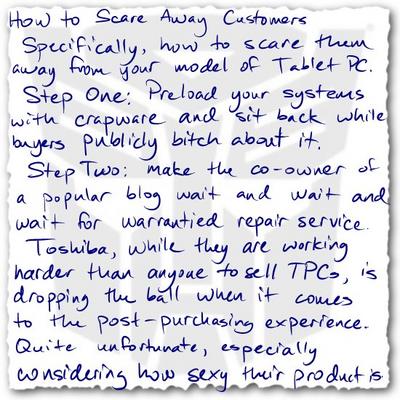 How to Scare Away Customers
Specifically, how to scare them
away from your model of Tablet PC.
Step One: Preload your systems
with crapware and sit back while
buyers publicly bitch about it.
Step Two: make the co-owner of
a popular blog wait and wait and
wait for warrantied repair service.
Toshiba, while they are working
harder than anyone to sell TPCs, is
dropping the ball when it comes
to the post-purchasing experience.
Quite unfortunate, especially
considering how sexy their product is.